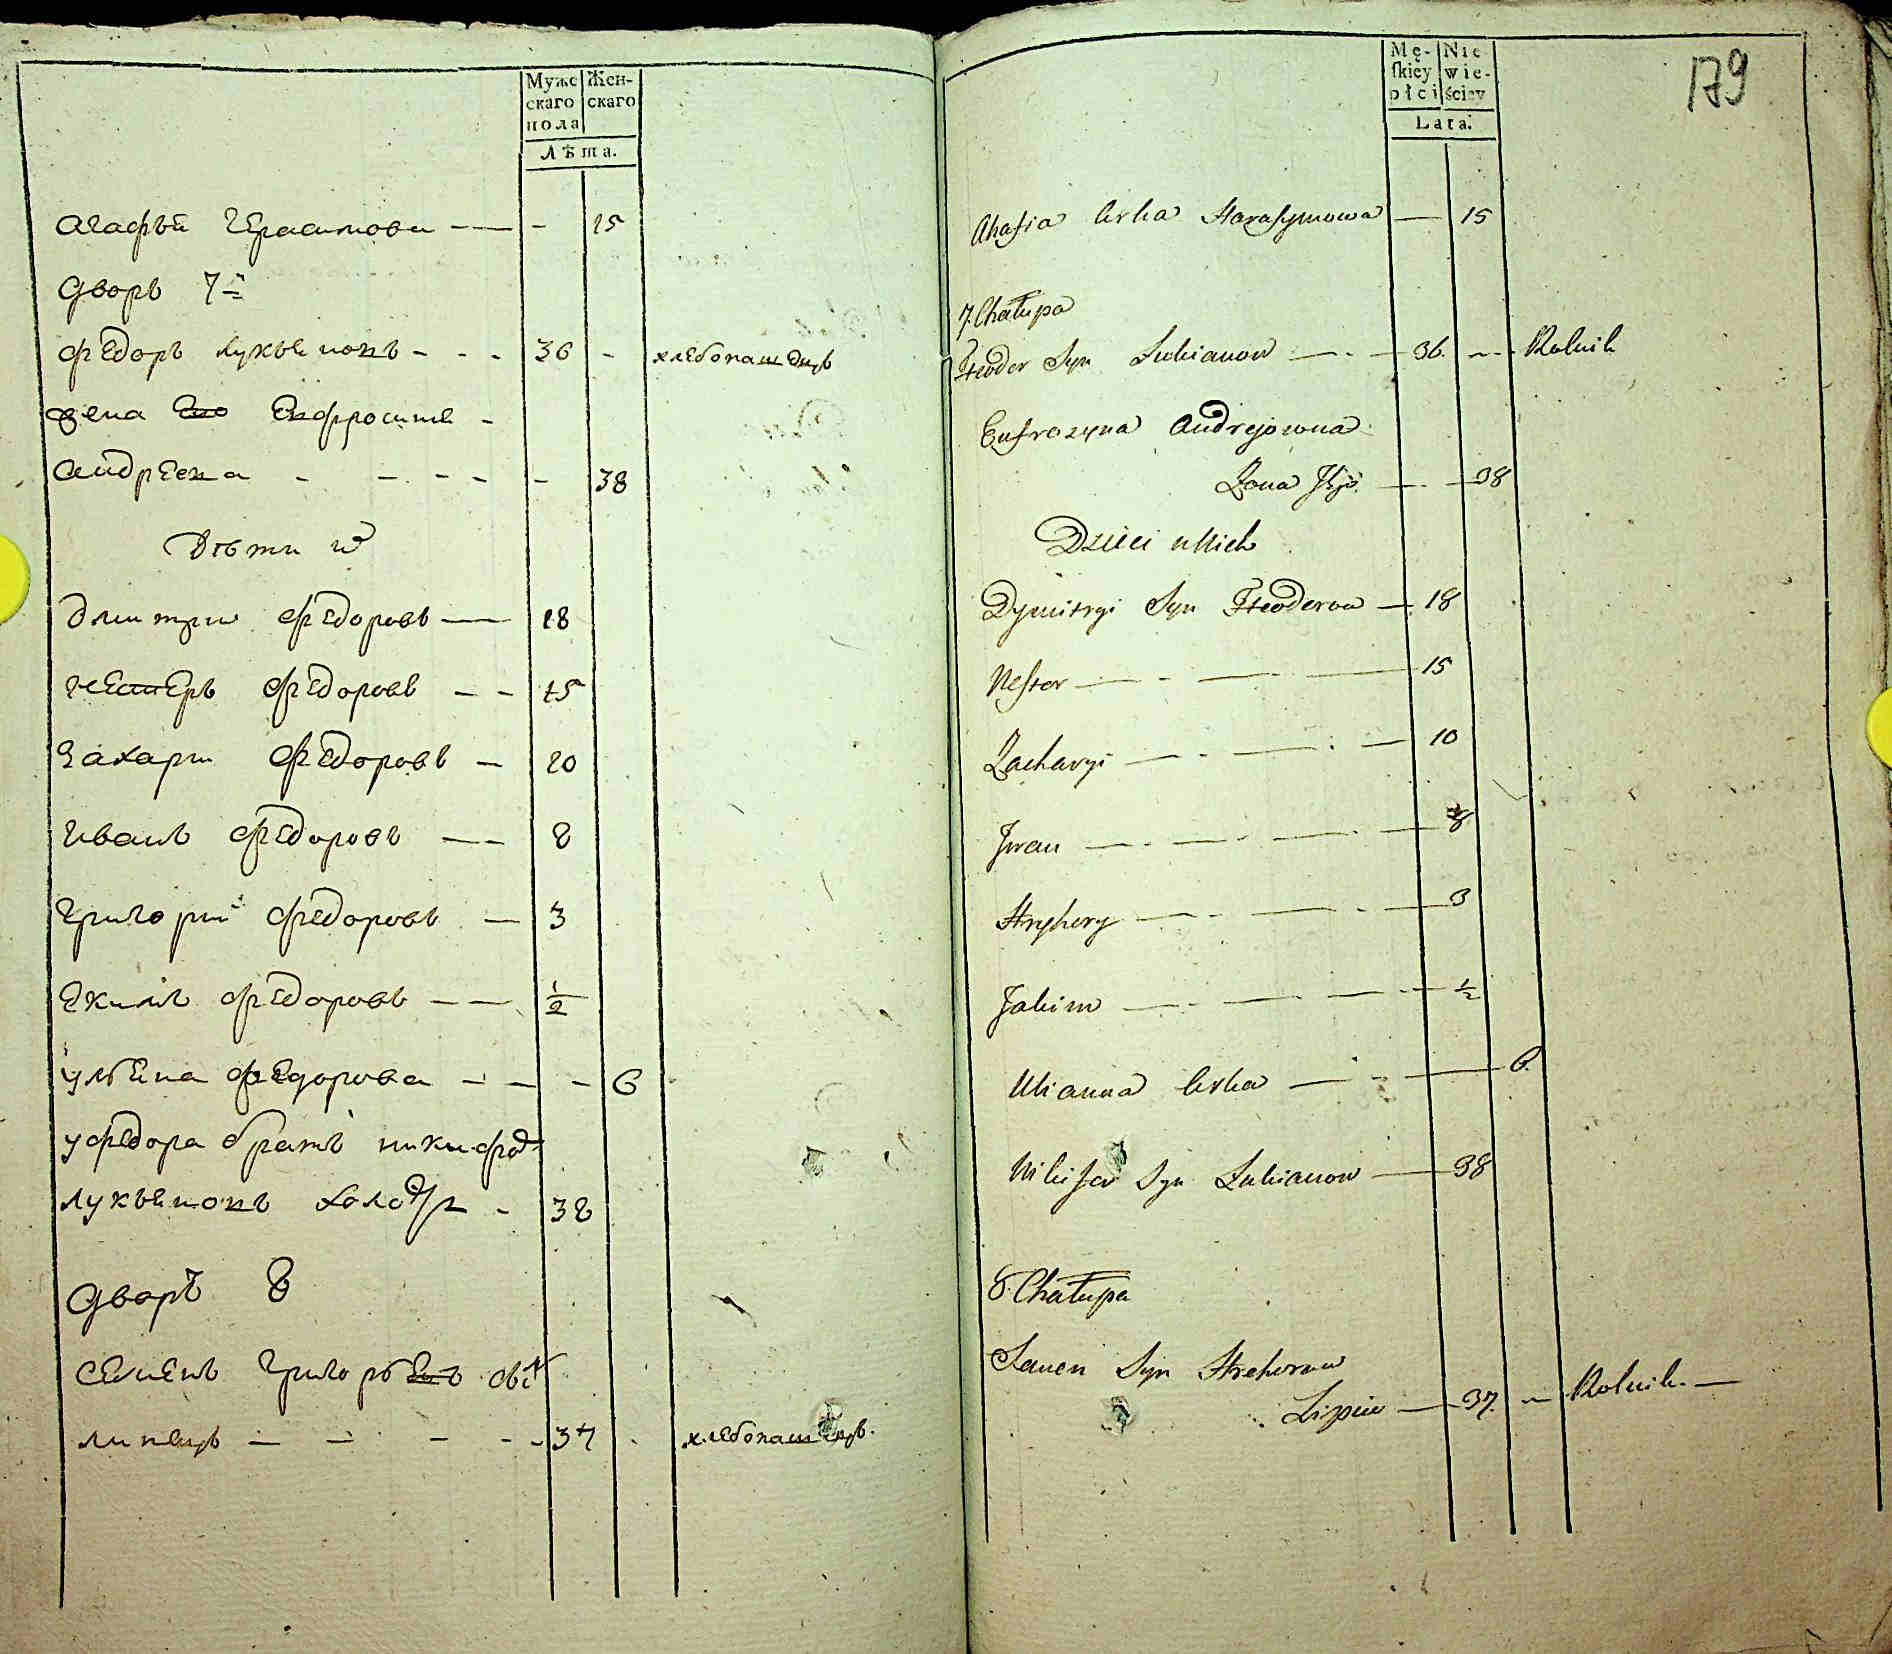 Муже Жен-
скаго скаго
пола
Лѣта.
Агафья Герасимова — — - 15
Дворъ 7й
Федоръ Лукьяновъ - - - 36 - хлебопашецъ
жена Ево Евфросинья -
Андреева - - - - - - 38
Дѣти их
Дмитрии Федоровъ — 18
Нестеръ Федоровъ — - 15
Захарии Федоровъ — 10
Иванъ Федоровъ — - 8
Григории Федоровъ — 3
Екимъ Федоровъ — — 1/2
Ульяна Федорова - — - 6
у Федора братъ Никифор
Лукьяновъ холостъ - 38
Дворъ 8
Семенъ Григорьевъ сынъ
Липецъ — - - - - 37 - хлебопашецъ.
179
Mę- Nie
skiey wie-
płci ściey
Lata.
Ahafia Crka Harasymowa — 15
7. Chałupa
Fteodor Syn Lukianow — - — 36. — - Rolnik
Eufrozyna Andrejowna
Żona Jego. — - — 38
Dzieci u Nich
Dymitryi Syn Fteodorow — 18
Nestor — - — — 15
Zacharyi — - — . — 10
Iwan — . — . — . — 8
Hryhory — . — . — 3
Jakim — . — . — . — 1/2
Ulianna Crka — - — 6.
Nikifor Syn Lukianow — 38
8. Chałupa
Semen Syn Hrehorow
Lipiec — 37. — Rolnik. —